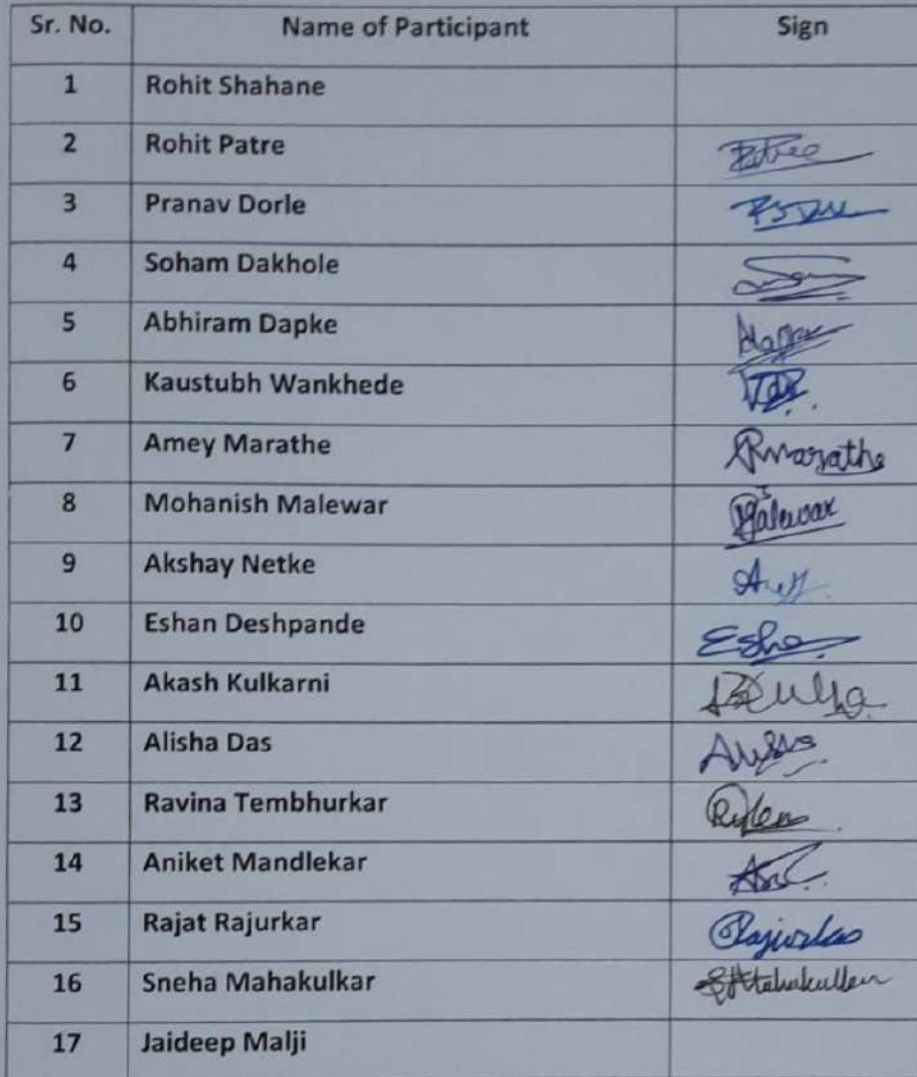 Sr. No. Name of Participant Sign
1 Rohit Shahane
2 Rohit Patre
3 Pranav Dorle
4 Soham Dakhole
5 Abhiram Dapke
6 Kaustubh Wankhede
7 Amey Marathe Rmarathe
8 Mohanish Malewar
9 Akshay Netke
10 Eshan Deshpande
11 Akash Kulkarni
12 Alisha Das
13 Ravina Tembhurkar
14 Aniket Mandlekar
15 Rajat Rajurkar
16 Sneha Mahakulkar
17 Jaideep Malji